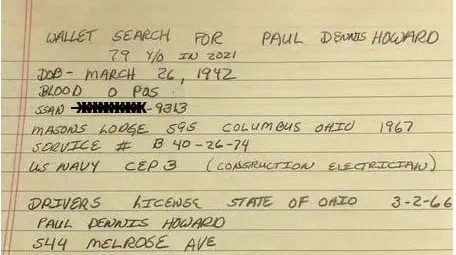 WALLET SEARCH FOR PAUL DENNIS HOWARD
79 Y/O IN 2021
DOB- MARCH 26, 1942
BLOOD O POS
SSAN -9313
MASONS LODGE 595 COLUMBUS OHIO 1967
SERVICE # B 40-26-74
US NAVY CEP3 (CONSTRUCTION ELECTRICIAN)
DRIVERS LICENSE STATE OF OHIO 3-2-66
PAUL DENNIS HOWARD
544 MELROSE AVE